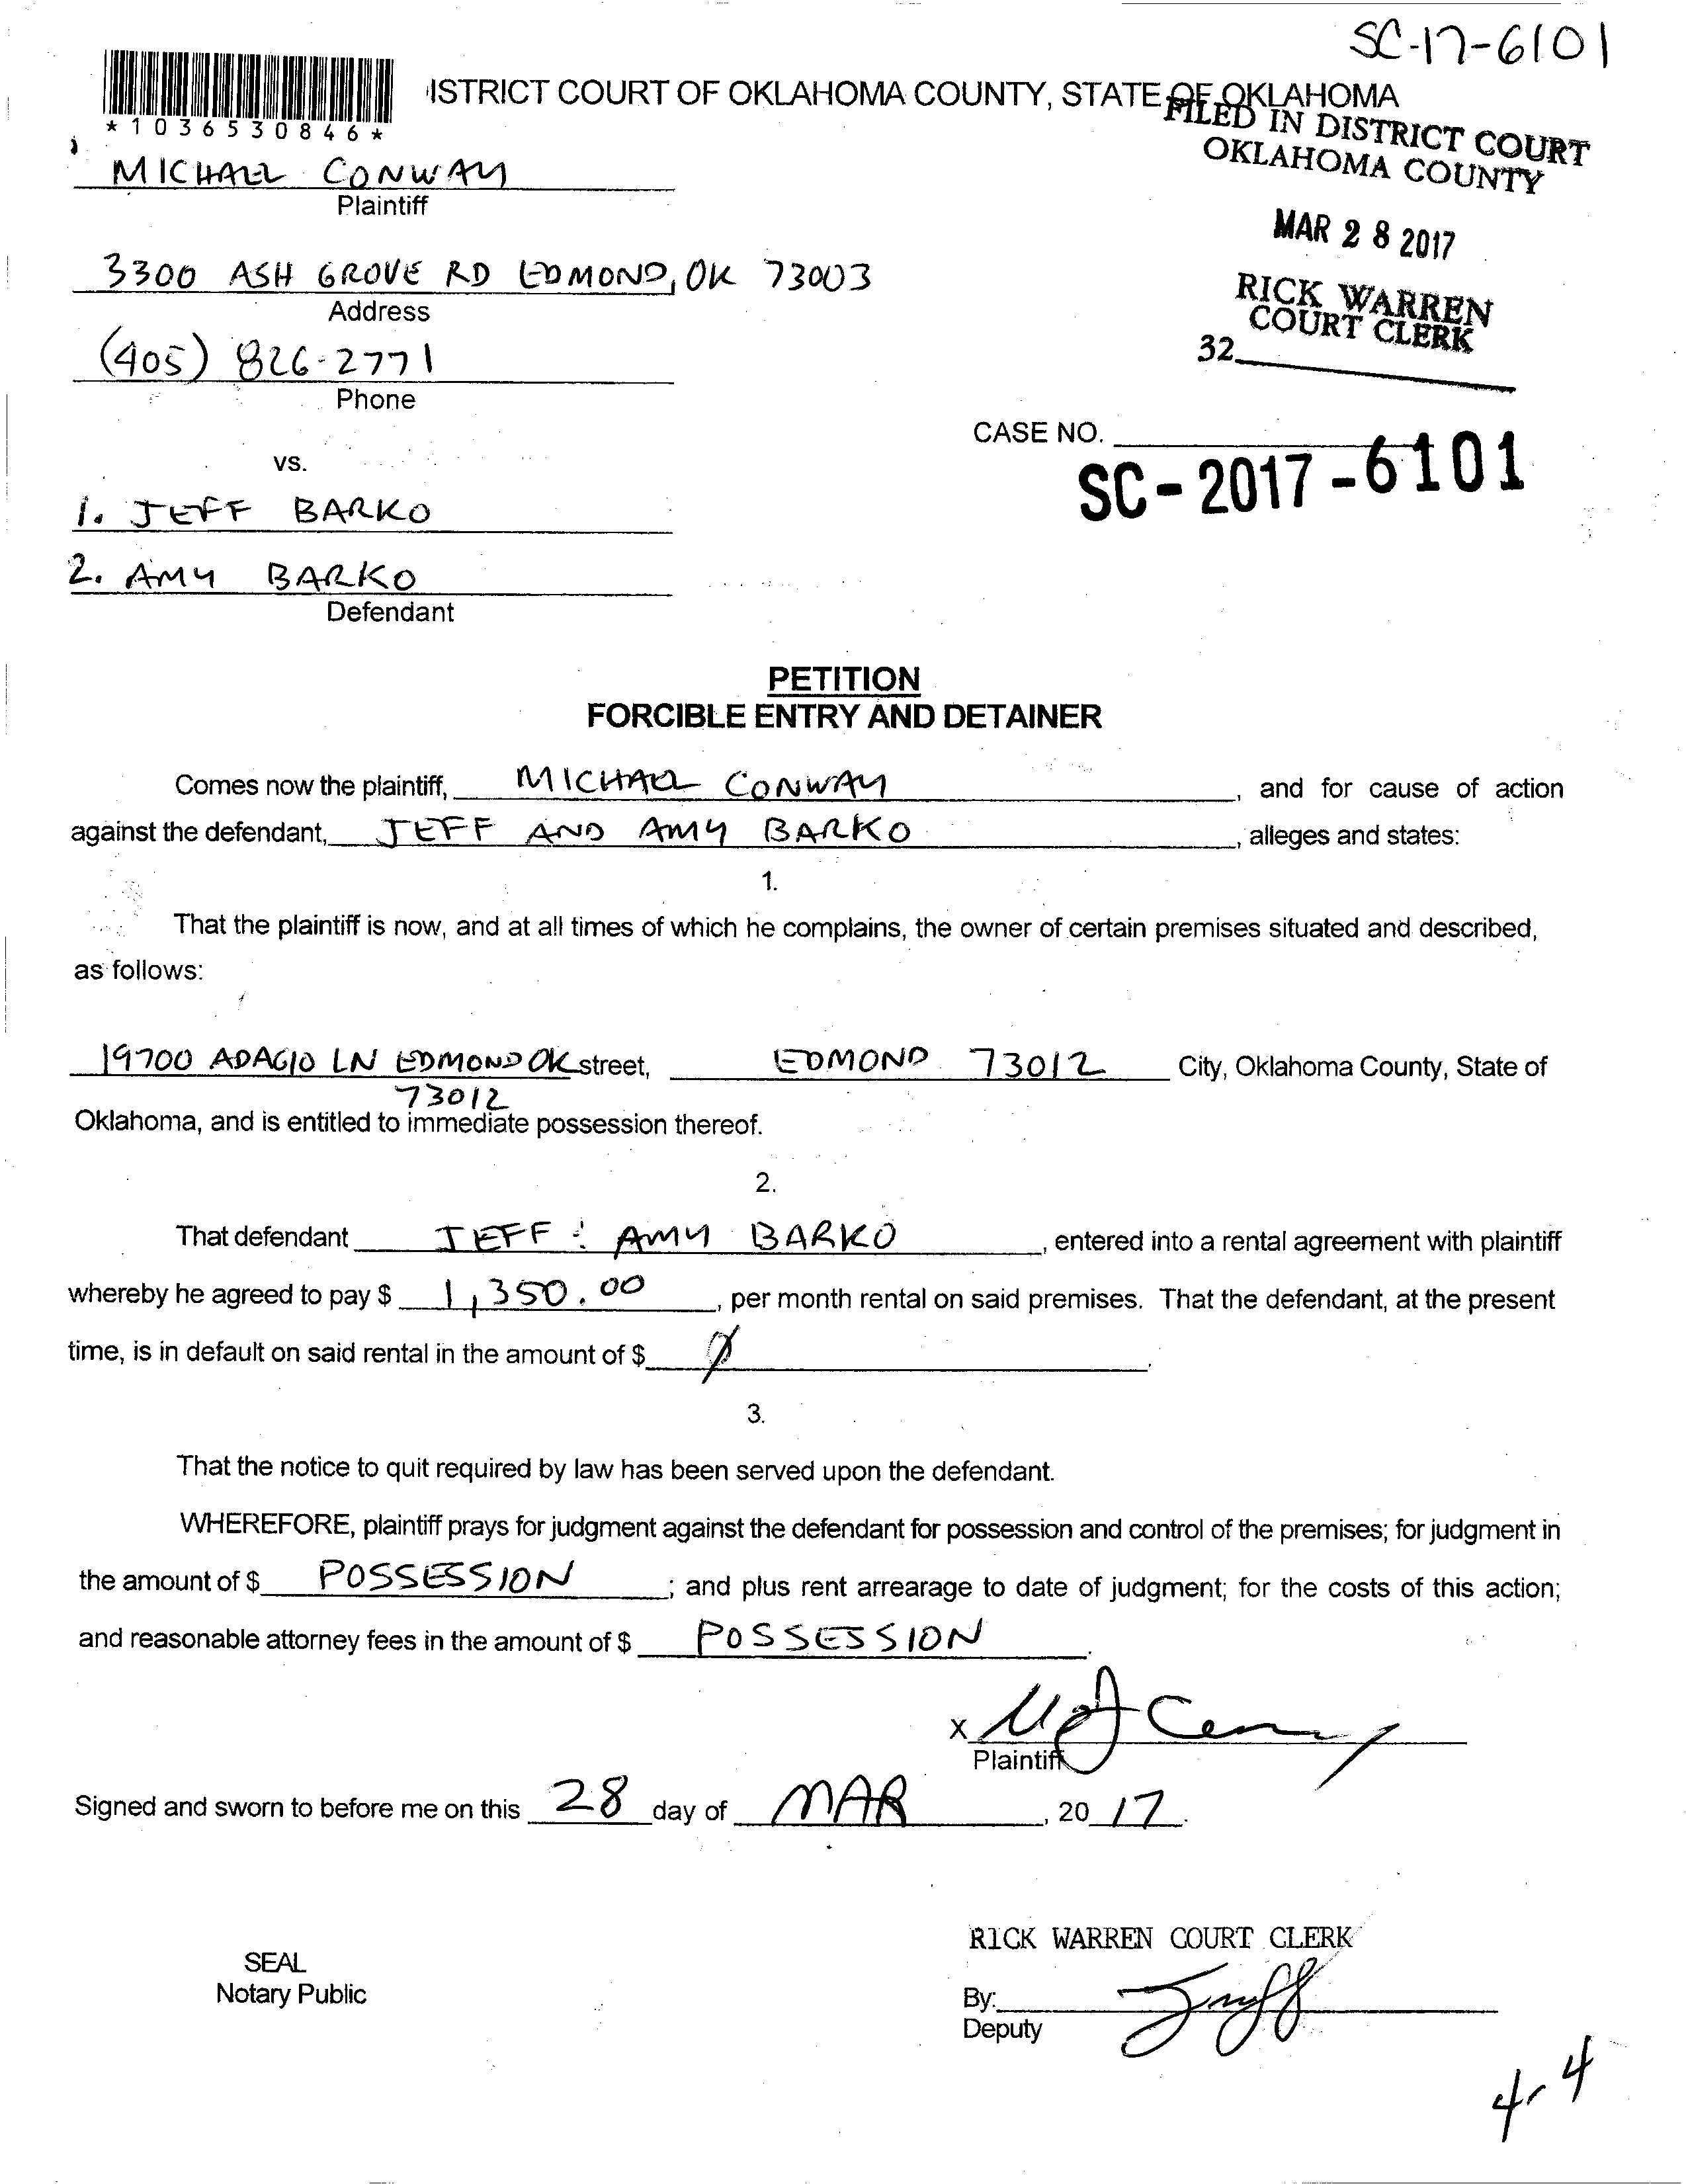 SC-17-6101
ISTRICT COURT OF OKLAHOMA COUNTY, STATE OF OKLAHOMA
*1036530846*
FILED IN DISTRICT COURT
OKLAHOMA COUNTY
MICHAEL CONWAY
Plaintiff
MAR 28 2017
3300 ASH GROVE RD EDMOND, OK 73003
Address
RICK WARREN
COURT CLERK
32
(405) 826-2771
Phone
CASE NO.
SC-2017-6101
vs.
1. JEFF BARKO
2. AMY BARKO
Defendant
PETITION
FORCIBLE ENTRY AND DETAINER
Comes now the plaintiff, MICHAEL CONWAY, and for cause of action
against the defendant, JEFF AND AMY BARKO, alleges and states:
1.
That the plaintiff is now, and at all times of which he complains, the owner of certain premises situated and described,
as follows:
19700 ADAGIO LN EDMOND OK street, EDMOND 73012 City, Oklahoma County, State of
73012
Oklahoma, and is entitled to immediate possession thereof.
2.
That defendant JEFF & AMY BARKO, entered into a rental agreement with plaintiff
whereby he agreed to pay $ 1,350.00, per month rental on said premises. That the defendant, at the present
time, is in default on said rental in the amount of $ Ø.
3.
That the notice to quit required by law has been served upon the defendant.
WHEREFORE, plaintiff prays for judgment against the defendant for possession and control of the premises; for judgment in
the amount of $ POSSESSION; and plus rent arrearage to date of judgment; for the costs of this action;
and reasonable attorney fees in the amount of $ POSSESSION.
X
Plaintiff
Signed and sworn to before me on this 28 day of MAR, 20 17.
RICK WARREN COURT CLERK
SEAL
Notary Public
By:
Deputy
4-4